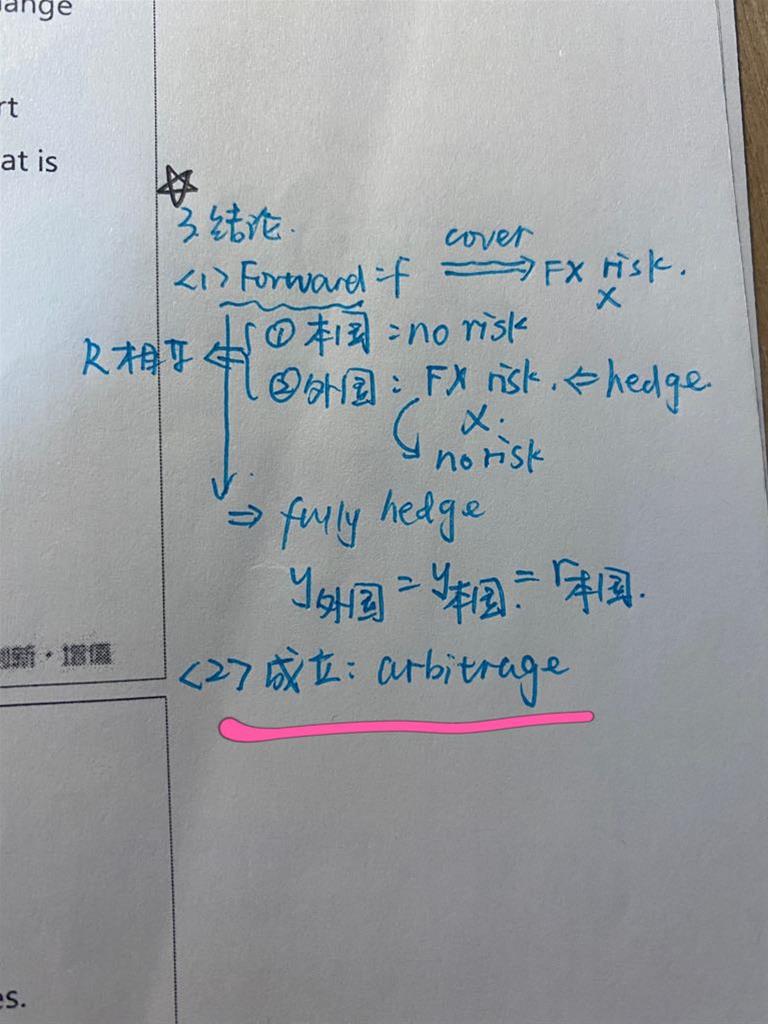 ange
rt
at is
☆
3.结论.
<1> Forward = f cover ⟹ FX risk. ×
R相互 ⇐ { ① 本国 : no risk
② 外国 : FX risk. ⇐ hedge.
×.
no risk
⇒ fully hedge
y外国 = y本国. = r本国.
创新·增值
<2> 成立: arbitrage
es.